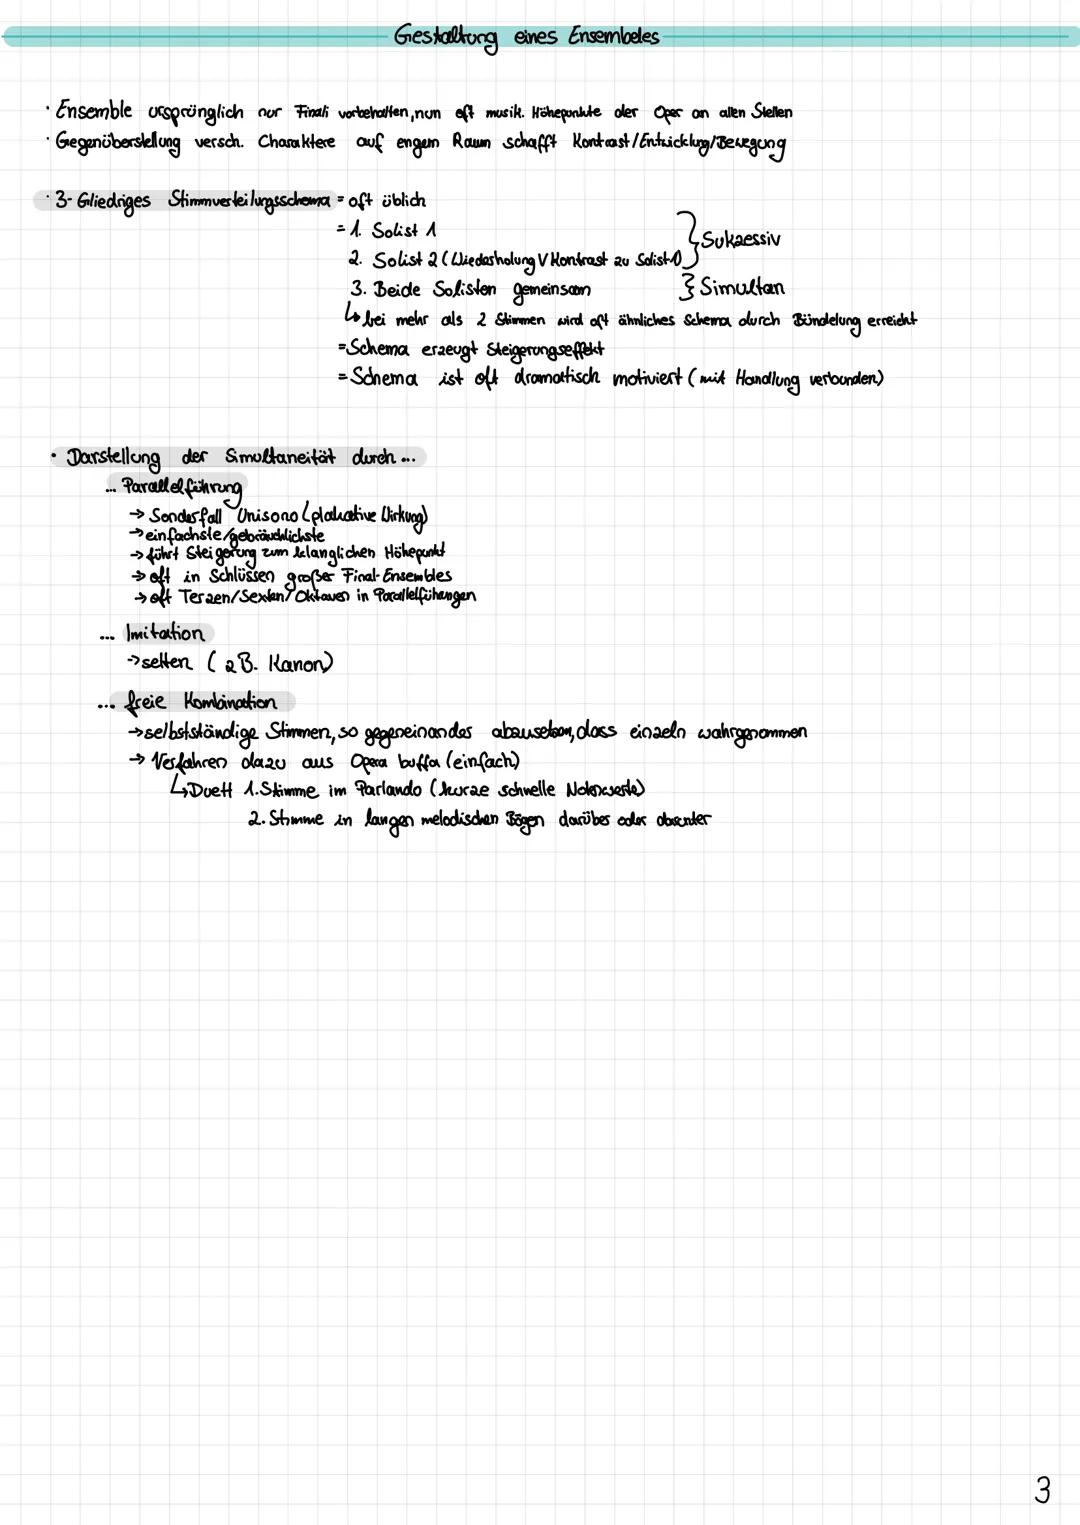 Gestaltung eines Ensembeles
· Ensemble ursprünglich nur Finali vorbehalten, nun oft musik. Höhepunkte der Oper an allen Stellen
· Gegenüberstellung versch. Charaktere auf engem Raum schafft Kontrast/Entwicklung/Bewegung
· 3-Gliedriges Stimmverteilungsschema = oft üblich
= 1. Solist 1
2. Solist 2 (Wiederholung V Kontrast zu Solist 1) } Sukzessiv
3. Beide Solisten gemeinsam } Simultan
↳ bei mehr als 2 Stimmen wird oft ähnliches Schema durch Bündelung erreicht
= Schema erzeugt Steigerungseffekt
= Schema ist oft dramatisch motiviert (mit Handlung verbunden)
· Darstellung der Simultaneität durch ...
... Parallelführung
→ Sonderfall Unisono (plakative Wirkung)
→ einfachste/gebräuchlichste
→ führt Steigerung zum klanglichen Höhepunkt
→ oft in Schlüssen großer Final-Ensembles
→ oft Terzen/Sexten/Oktaven in Parallelfühungen
... Imitation
→ selten (zB. Kanon)
... freie Kombination
→ selbstständige Stimmen, so gegeneinander abzusetzen, dass einzeln wahrgenommen
→ Verfahren dazu aus Opera buffa (einfach)
↳ Duett 1. Stimme im Parlando (kurze schnelle Notenwerte)
2. Stimme in langen melodischen Bögen darüber oder darunter
3